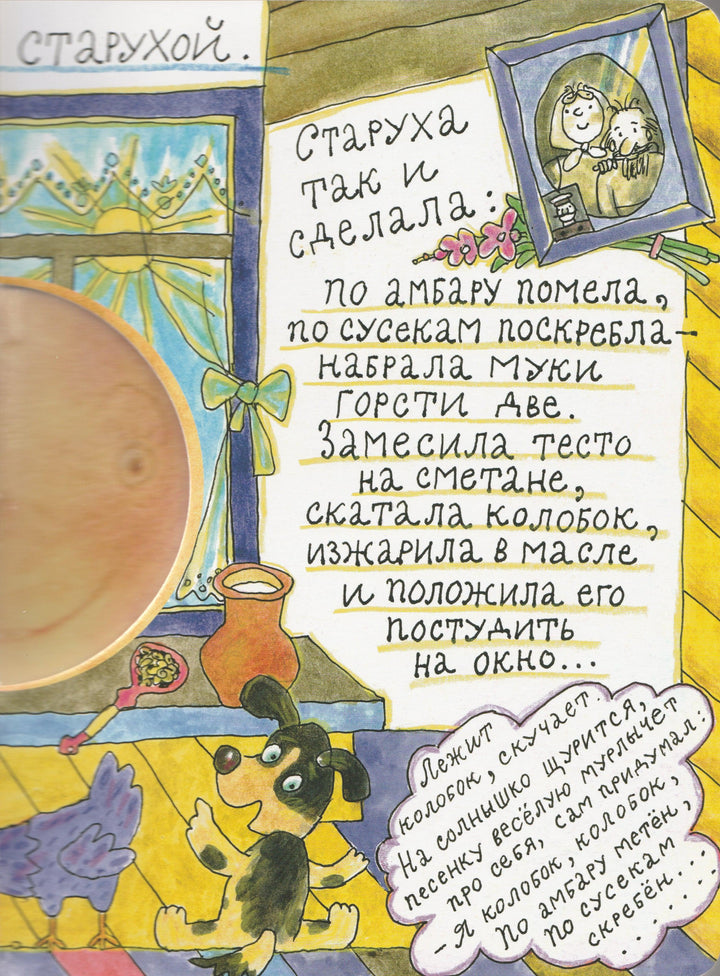 СТАРУХОЙ.
СТАРУХА
ТАК И
СДЕЛАЛА:
ПО АМБАРУ ПОМЕЛА,
ПО СУСЕКАМ ПОСКРЕБЛА —
НАБРАЛА МУКИ
ГОРСТИ ДВЕ.
ЗАМЕСИЛА ТЕСТО
НА СМЕТАНЕ,
СКАТАЛА КОЛОБОК,
ИЗЖАРИЛА В МАСЛЕ
И ПОЛОЖИЛА ЕГО
ПОСТУДИТЬ
НА ОКНО...
ЛЕЖИТ
КОЛОБОК, СКУЧАЕТ.
НА СОЛНЫШКО ЩУРИТСЯ,
ПЕСЕНКУ ВЕСЁЛУЮ МУРЛЫЧЕТ
ПРО СЕБЯ, САМ ПРИДУМАЛ:
- Я КОЛОБОК, КОЛОБОК,
ПО АМБАРУ МЕТЁН,
ПО СУСЕКАМ
СКРЕБЁН...
.......